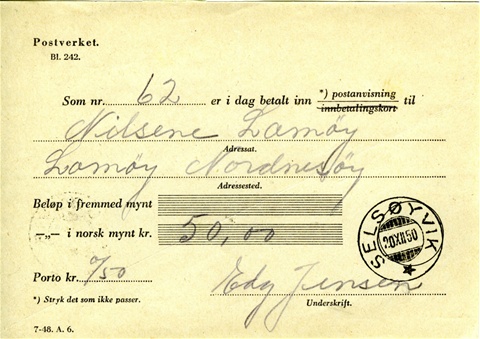 Postverket.
Bl. 242.
Som nr. 62 er i dag betalt inn *) postanvisning til
innbetalingskort
Nilsene Lamøy
Adressat.
Lamøy Nordnesøy
Adressested.
Beløp i fremmed mynt
—„— i norsk mynt kr. 50,00
SELSØYVIK
20XII50
Porto kr. 0/50
Edg Jensen
*) Stryk det som ikke passer.
Underskrift.
7-48. A. 6.